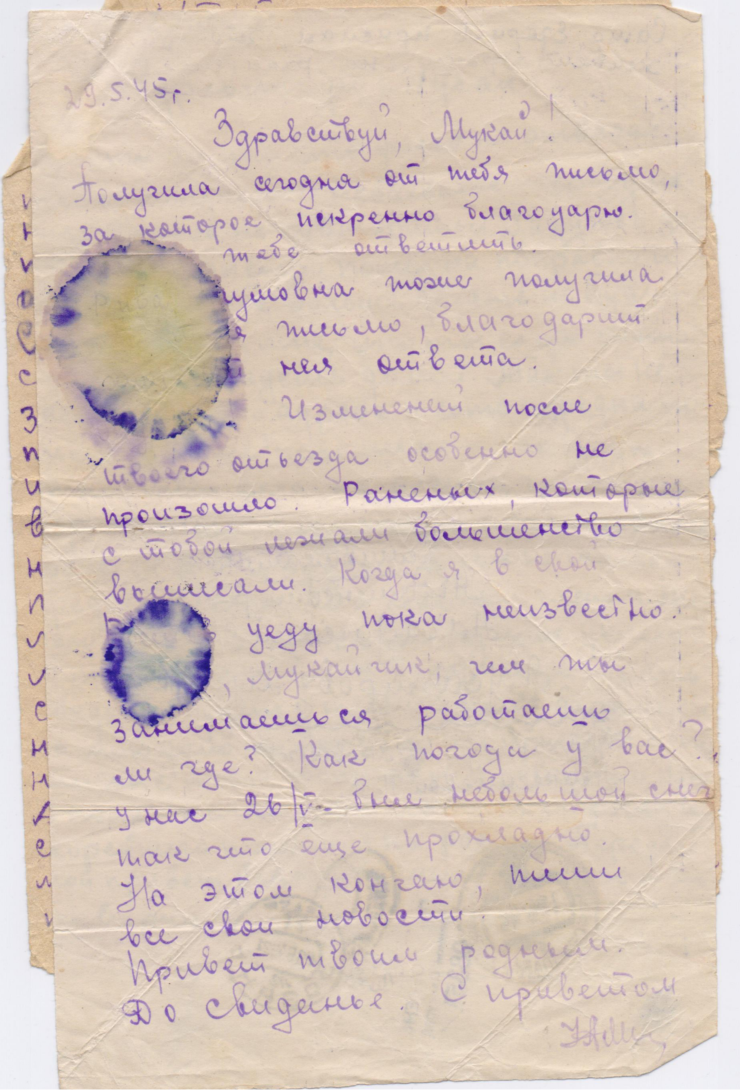 29.5.45г.
Здравствуй, Мукай!
Получила сегодня от тебя письмо,
за которое искренно благодарю.
тебе ответить.
умовна тоже получила
я письмо, благодарит
нея ответа.
Изменений после
твоего отъезда особенно не
произошло. Раненых, которые
с тобой лежали большенство
выписали. Когда я в свой
уеду пока неизвестно.
, Мукайчик, чем ты
занимаешься работаешь
ли где? Как погода у вас?
У нас 26/V - был небольшой снег
так что еще прохладно.
На этом кончаю, пиши
все свои новости.
Привет твоим родным.
До свиданье. С приветом